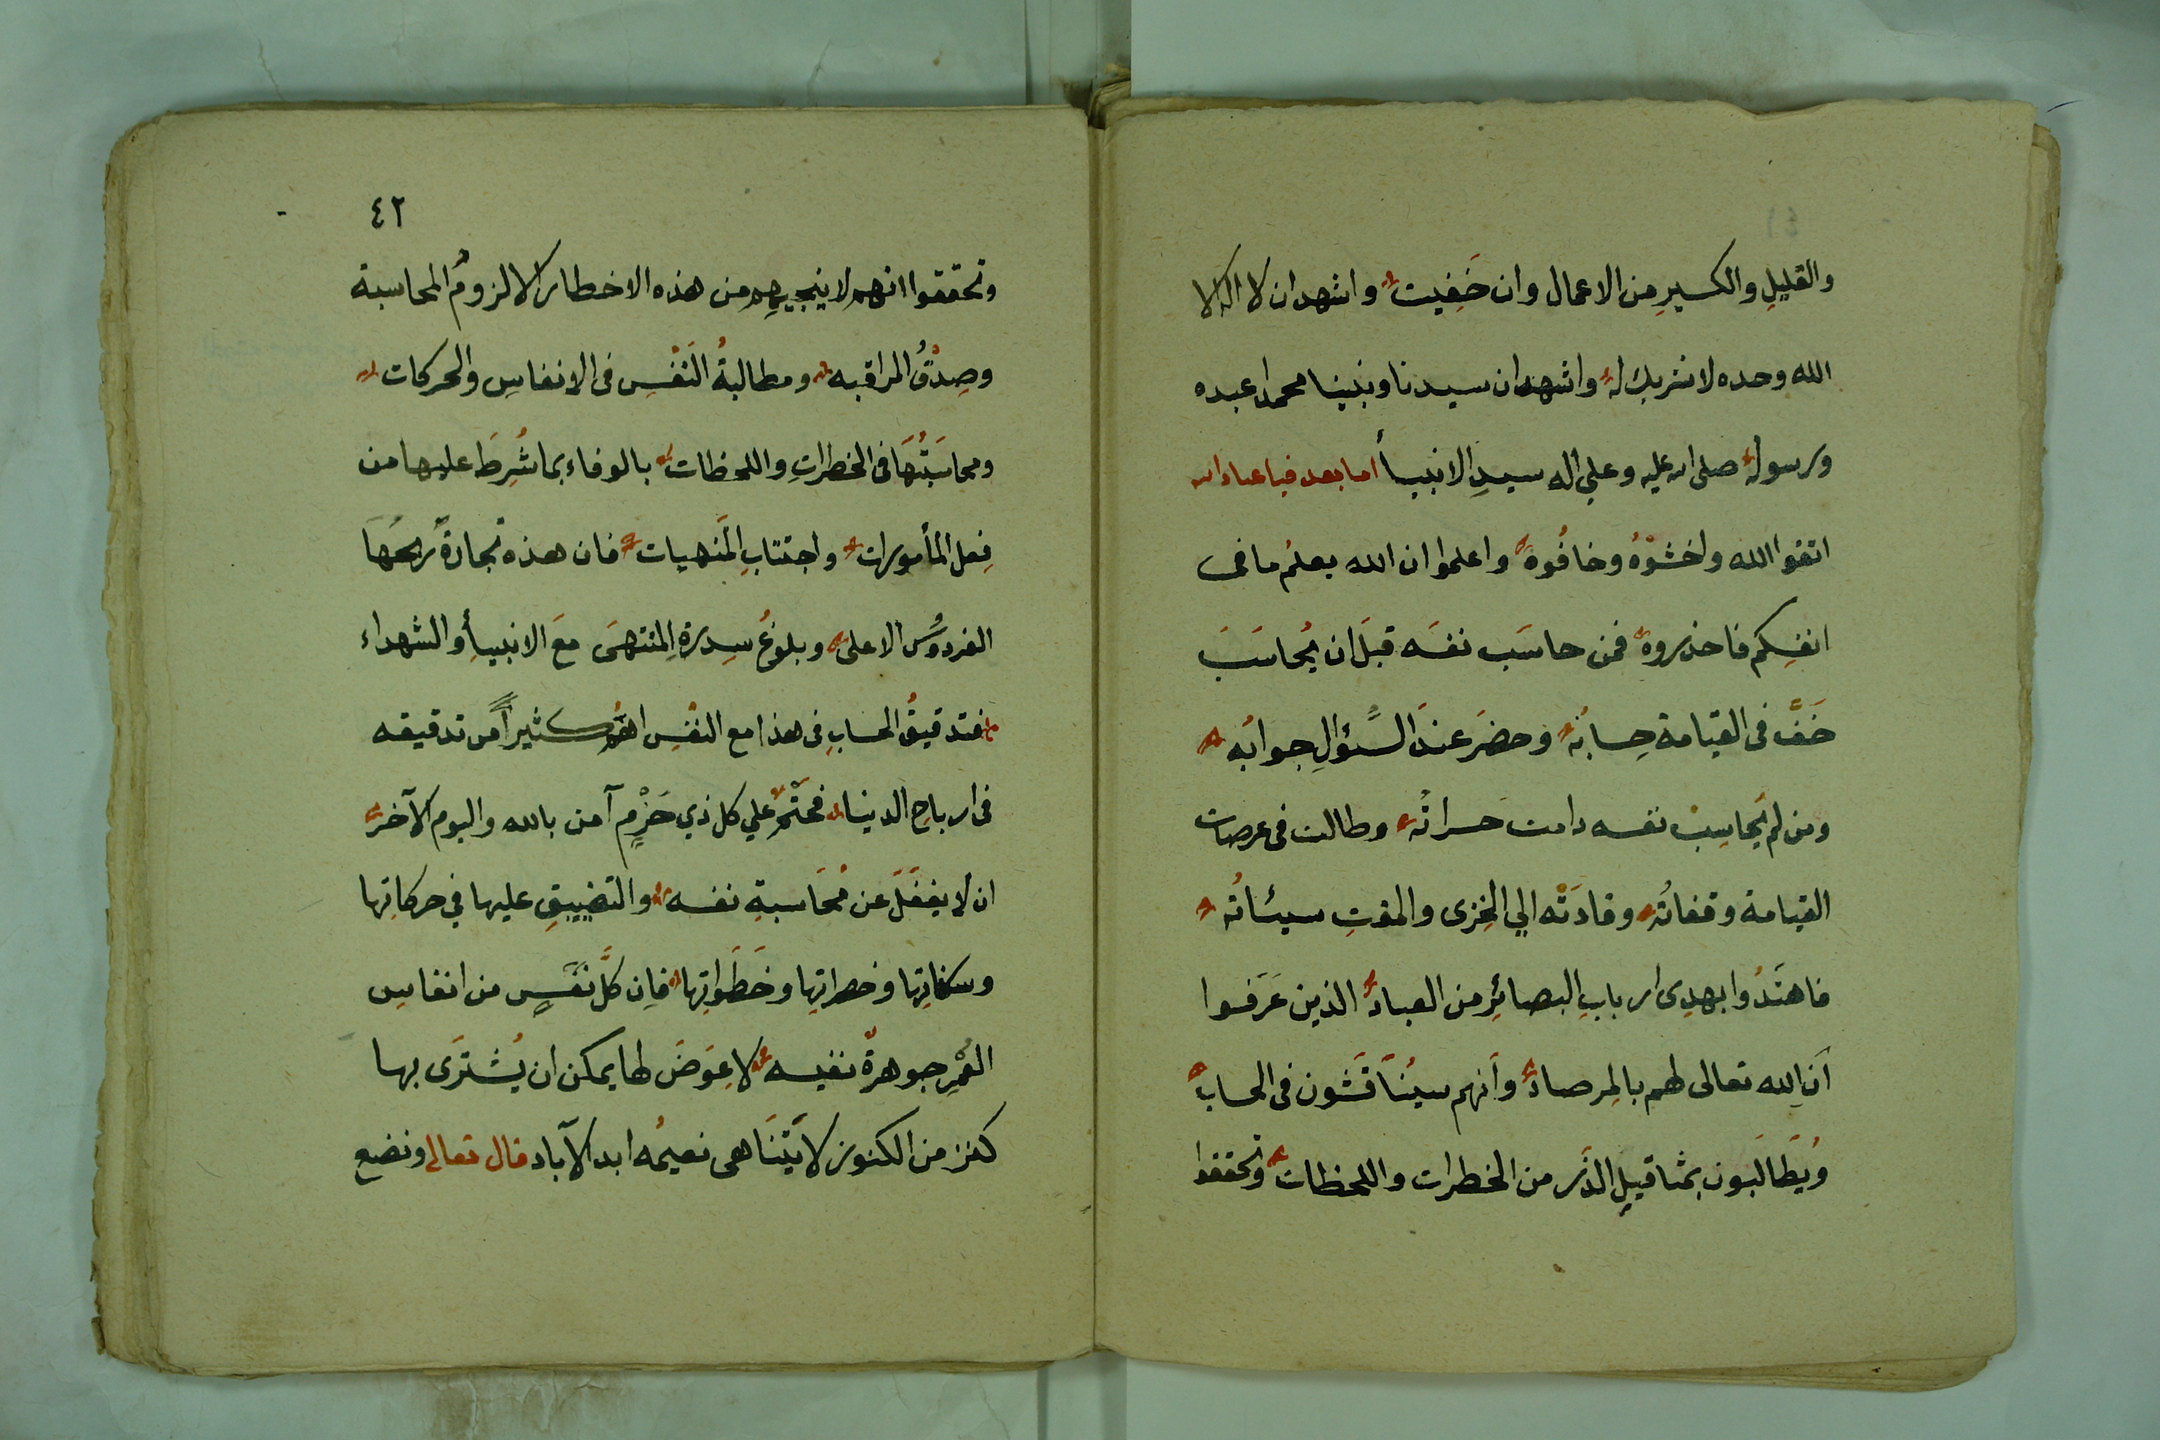 والقليلِ والكسيرِ من الاعمال وان خَفِيت واشهد ان لا اله الا
الله وحده لا شريك له واشهد ان سيدنا ونبينا محمدا عبده
ورسوله صلى الله عليه وعلي اله سيدِ الانبيأ اما بعد فيا عباد الله
اتقوا الله واخشَوْهُ وخافُوه واعلموا ان الله يعلمُ ما فى
انفسِكم فاحذروه فمن حاسَب نفسَه قبلَ ان يُحاسَبَ
خَفَّ فى القيامة حِسابُه وحضرَ عندَ السُّؤالِ جوابُه
ومن لم يُحاسِبْ نفسه دامت حسراتُه وطالت فى عرصات
القيامة وقفاتُه وقادَتْه الي الخِزى والمقتِ سيئاتُه
فاهتَدُوا بهدِى اربابِ البصائرِ من العباد الذين عَرَفوا
أنَّ الله تعالى لهم بالمِرصاد وأنهم سيُناقَشُون فى الحساب
ويُطَالَبَون بمثاقيلِ الذَّر من الخطرات واللحظات وتحققوا
٤٢
وتحققوا انهم لا ينجيهِم من هذه الاخطار الا لزومُ المحاسبة
وصِدْقُ المراقبه ومطالبةُ النَفْسِ فى الانفاسِ والحركات
ومحاسَبَتُهَا فى الخطراتِ واللحظات بالوفاء بما شُرِطَ عليها من
فِعل المأمورات واجتنابِ المَنهيات فان هذه تجارةٌ ربحُهَا
الفردوُس الاعلى وبلوغُ سِدرةِ المنتهَى مَعَ الانبيأِ والشهداء
فتدقيقُ الحسابِ فى هذا مع النفْسِ اهمُّ كثيراً من تدقيقه
فى ارباحِ الدنيا فحَتْمٌ علي كل ذي حَزْمٍ آمن بالله واليوم الآخر
ان لا يغفَلَ عن مُحَاسبةِ نفسه والتضييقِ عليها في حركاتِها
وسكناتِها وخطراتِها وخَطَواتِها فاِن كلَّ نَفَسٍ من انفاسِ
العُمْرِ جوهرةٌ نفيسه لا عِوَضَ لها يمكن ان يُشترَى بها
كنز من الكنوز لا يَتَنَاهى نعيمُه ابد الآباد قال تعالى ونضع